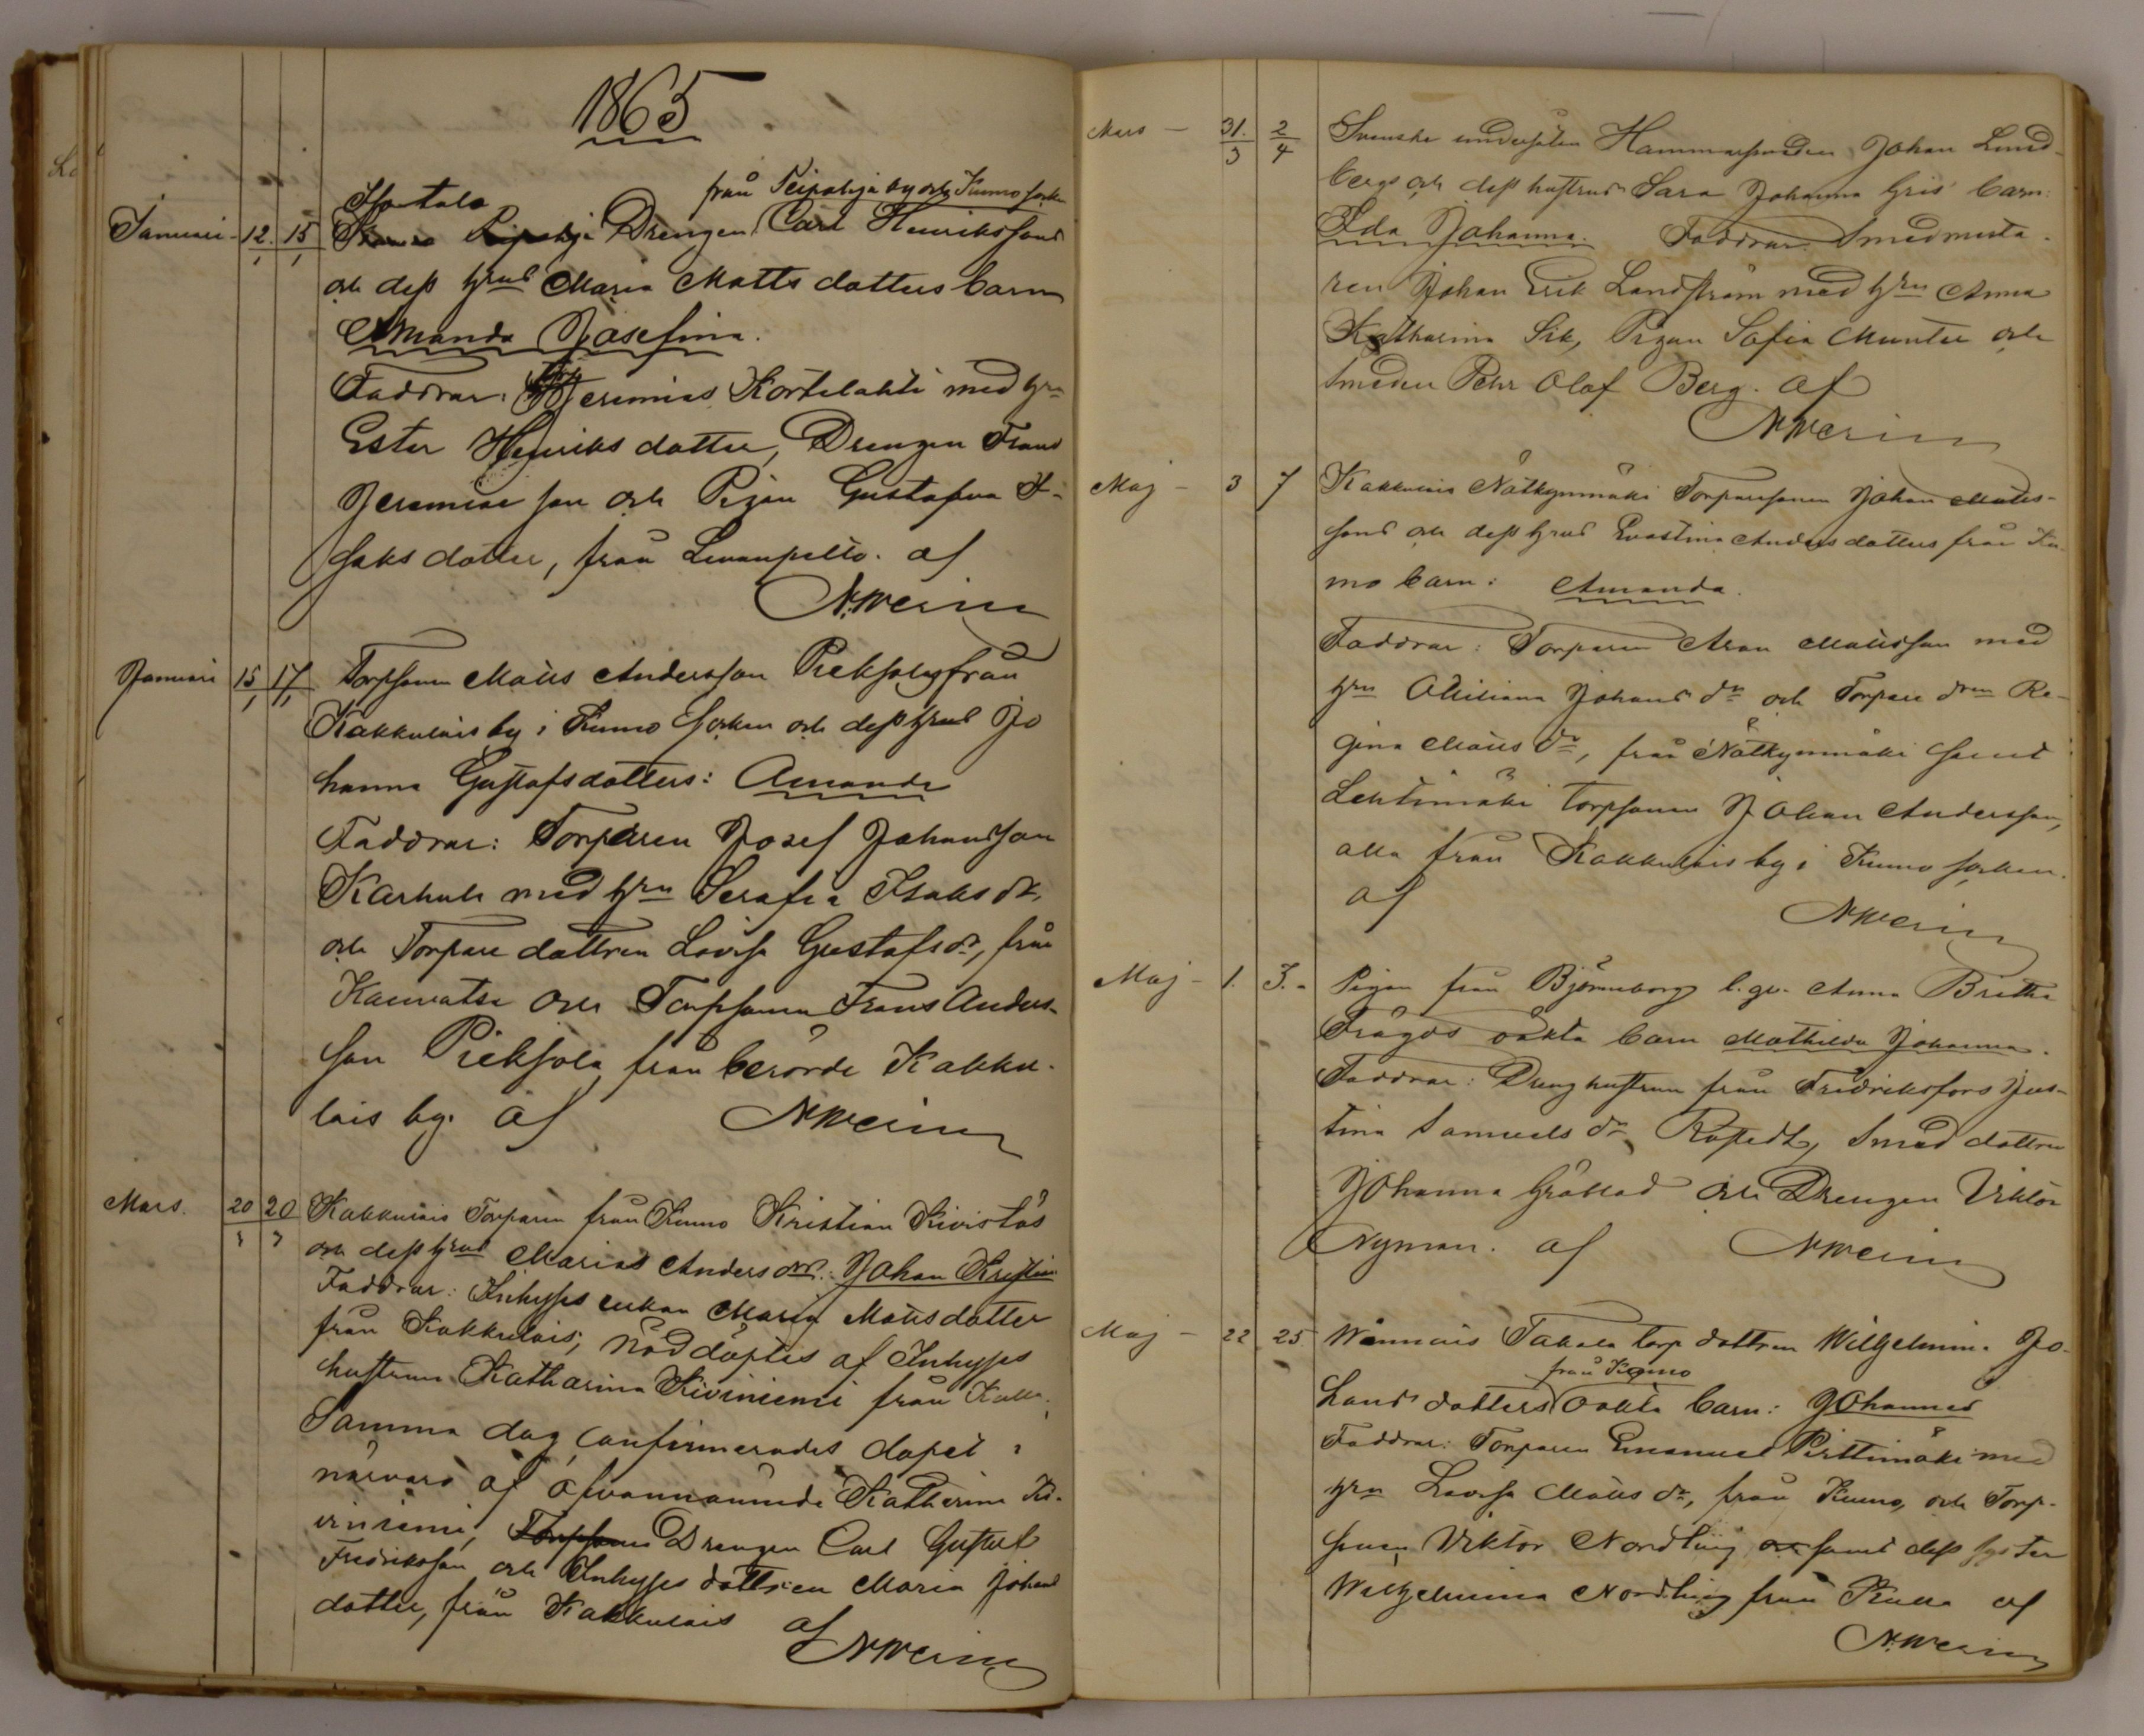 1865
från Peipohja by och Kumo sockn
Januari 12. 15 Drengen Carl Henrikssons
och dess hrus Maria Mattsdotters barn
Amanda Josefina.
Faddrar: Jeremias Kortelahti med hrn
Ester Henriksdotter, Drengen Frans
Jeremiae son och Pigan Gustafva I-
saksdotter, från Levanpelto. af
Januari 15 17 Torpsonen Matts Andersson Pieksolas från
Kakkulais by i Kumo Socken och dess hrus Jo
hanna Gustafsdotters: Amanda
Faddrar: Torparen Josef Johansson
Karhula med hrn Serafia Isaks dr,
och Torpare dottren Lovisa Gustafs dr, från
Kauvatsa och Torpsonen Frans Anders-
son Pieksola från berörde Kakku-
lais by. af
Mars. 20 20 Kakkulais Torparen från Kumo Kristian Kivistös
och dess hrus Marias Anders drs: Johan Kristian
Faddrar: Inhyses enkan Maria Mattsdotter
från Kakkulais; Nöddöptes af Inhyses
hustrun Katharina Kiviniemi från
Samma dag confirmerades dopet i
närvaro af ofvannämnde Katharina Ki-
viniemi, Torpsonen Drengen Carl Gustaf
Fredriksson och Inhyses dottren Maria Johans
dotter, från Kakkulais af
Mars 31. 3 2 4 Svenske undersåten Hammarsmeden Johan Lind-
bergs och dess hustrus Sara Johanna Gris barn:
Ida Johanna. Faddrar Smedmästa-
ren Johan Erik Landström med hrn Anna
Katharina Sik, Pigan Sofia Munter och
Smeden Pehr Olof Berg. af
Maj 3 7 Kakkulais Nätkynmäki Torparsonen Johan Matts-
sons och dess hrus Evastina Andersdotters från Ku-
mo barn: Amanda.
Faddrar: Torparen Aron Mattsson med
hrn Johans dr och Torpare drn Re-
gina Matts dr, från Nätkynmäki samt
Lehtimäki torpsonen Johan Andersson,
alla från Kakkulais by i Kumo socken.
af
Maj 1. 3. Pigan från Björneborg Anna Britha
oäkta barn Mathilda Johanna.
Faddrar: Dreng hustrun från Fredriksfors Jus-
tina Samuels dr Smed dottren
Johanna och Drengen Viktor
Nyman. af
Maj 22 25. Torp dottren Wilhelmina Jo-
från Kumo
hans dotters oäkta barn: Johannes
Faddrar: Torparen Emanuel Pirttimäki med
hrn Lovisa Matts dr, från Kumo, och Torp-
sonen Viktor Nordling samt dess syster
Wilhelmina Nordling från af